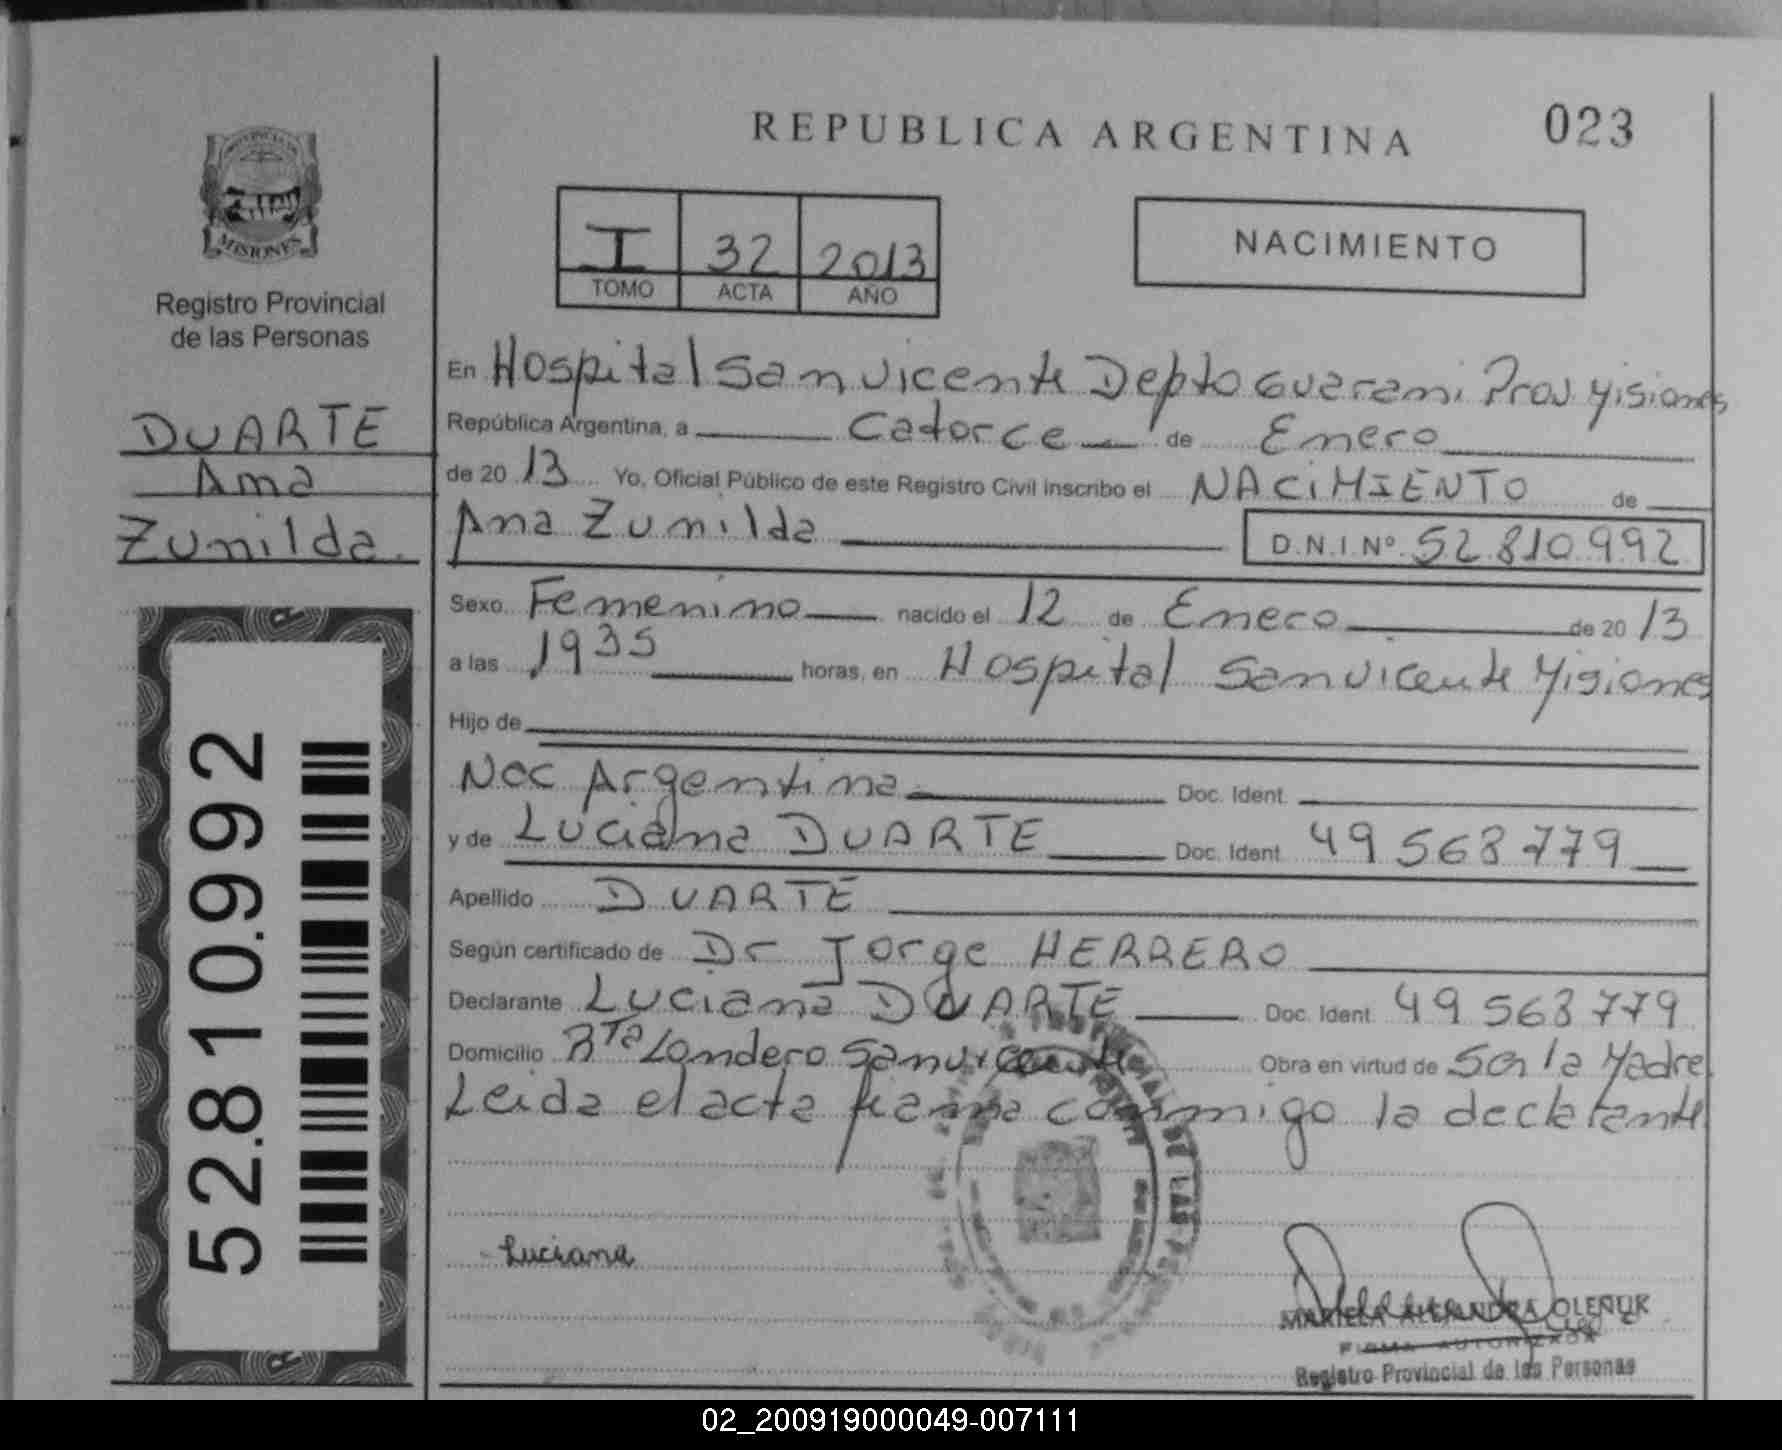 REPUBLICA ARGENTINA
023
MISIONES
Registro Provincial
de las Personas
DUARTE
Ana
Zunilda.
52.810.992
I 32 2013
TOMO ACTA AÑO
NACIMIENTO
En Hospital San Vicente Depto Guarani Prov Misiones
República Argentina, a Catorce de Enero
de 20 13 Yo, Oficial Público de este Registro Civil inscribo el NACIMIENTO de
Ana Zunilda D.N.I.Nº 52 810 992
Sexo Femenino nacido el 12 de Enero de 20 13
a las 1935 horas, en Hospital San Vicente Misiones
Hijo de
Nac Argentina Doc. Ident.
y de Luciana DUARTE Doc. Ident. 49 568 779
Apellido DUARTE
Según certificado de Dr Jorge HERRERO
Declarante Luciana DUARTE Doc. Ident. 49 568 779
Domicilio Rta Londero San Vicente Obra en virtud de Ser la Madre
Leida el acta firma conmigo la declarante
Luciana
MARIELA ALEJANDRA OLENUK
FIRMA AUTORIZADA
Registro Provincial de las Personas
02_200919000049-007111